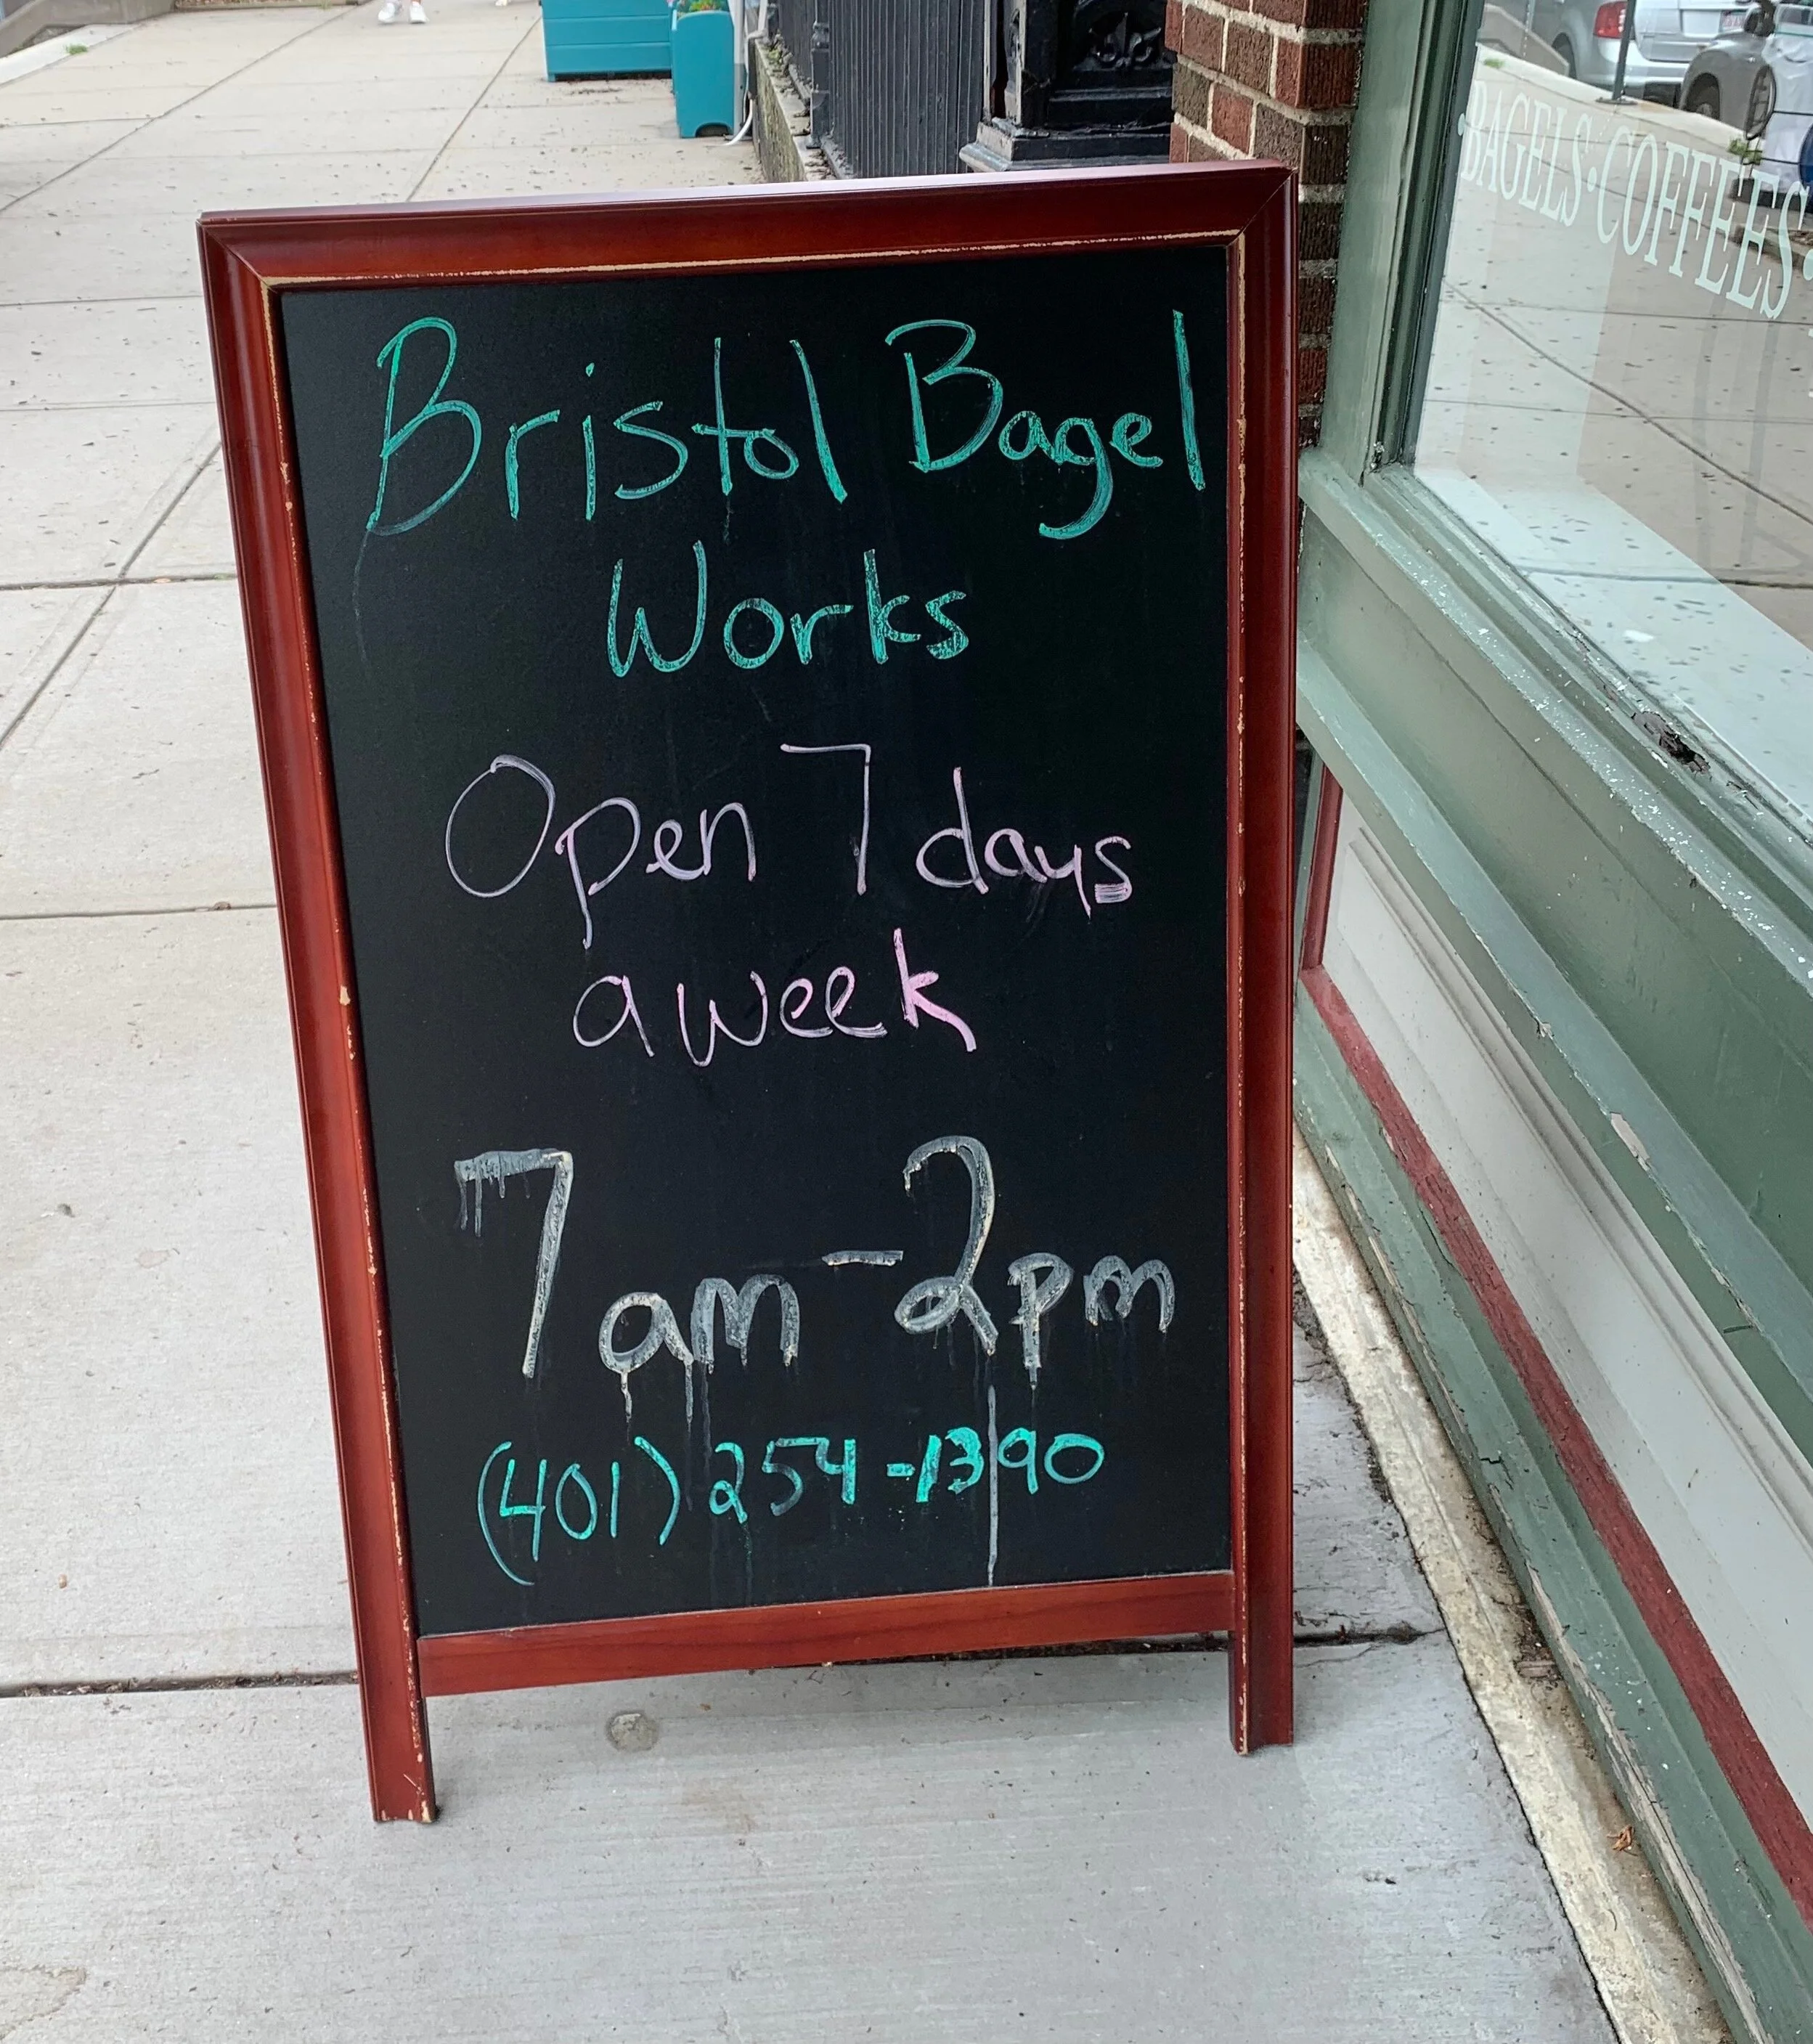 Bristol Bagel
Works
Open 7 days
a week
7am-2pm
(401) 254-1390
·BAGELS·COFFEES·